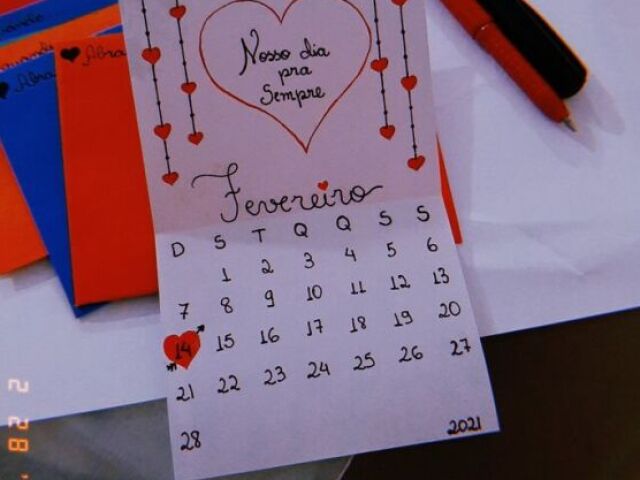 Nosso dia
pra
Sempre
Abra
Abra
Fevereiro
D S T Q Q S S
1 2 3 4 5 6
7 8 9 10 11 12 13
14 15 16 17 18 19 20
21 22 23 24 25 26 27
28
2021
2 28 '